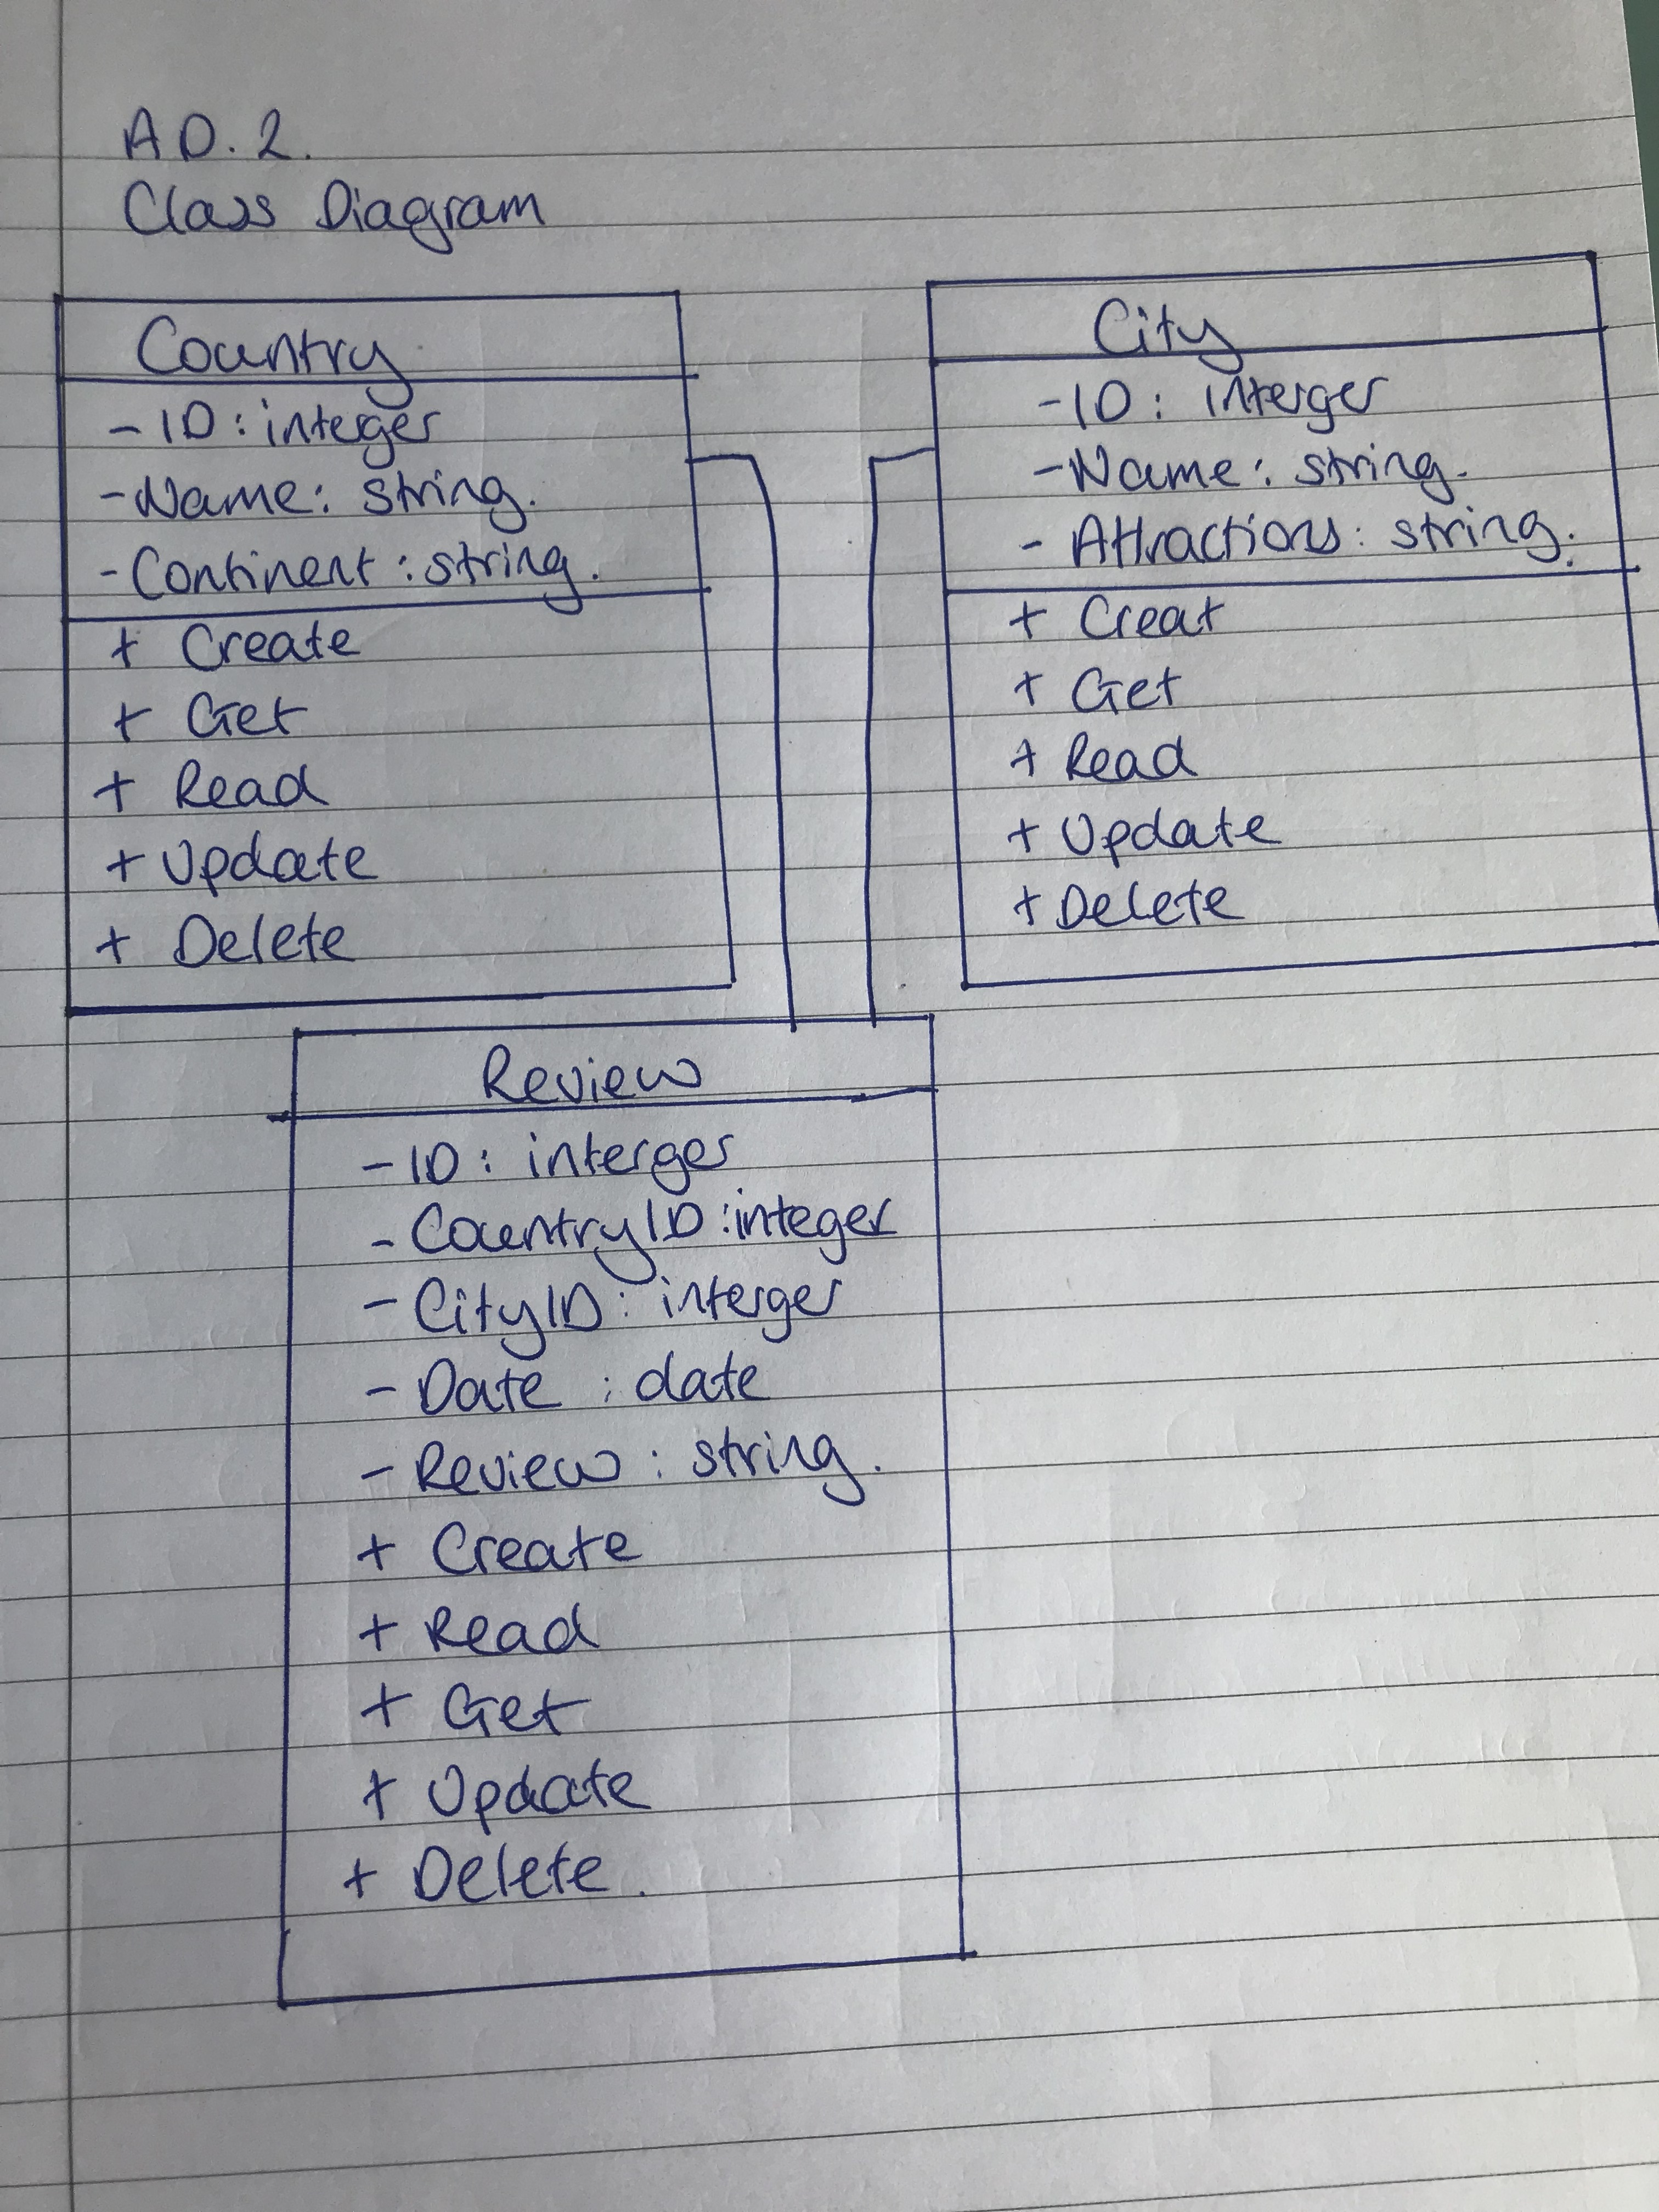 A D. 2.
Class Diagram
Country
- ID : interger
- Name : string.
- Continent : string.
+ Create
+ Get
+ Read
+ Update
+ Delete
City
- ID : interger
- Name : string.
- Attractions : string.
+ Creat
+ Get
+ Read
+ Update
+ Delete
Review
- ID : interger
- CountryID : integer
- CityID : interger
- Date : date
- Review : string.
+ Create
+ Read
+ Get
+ Update
+ Delete.